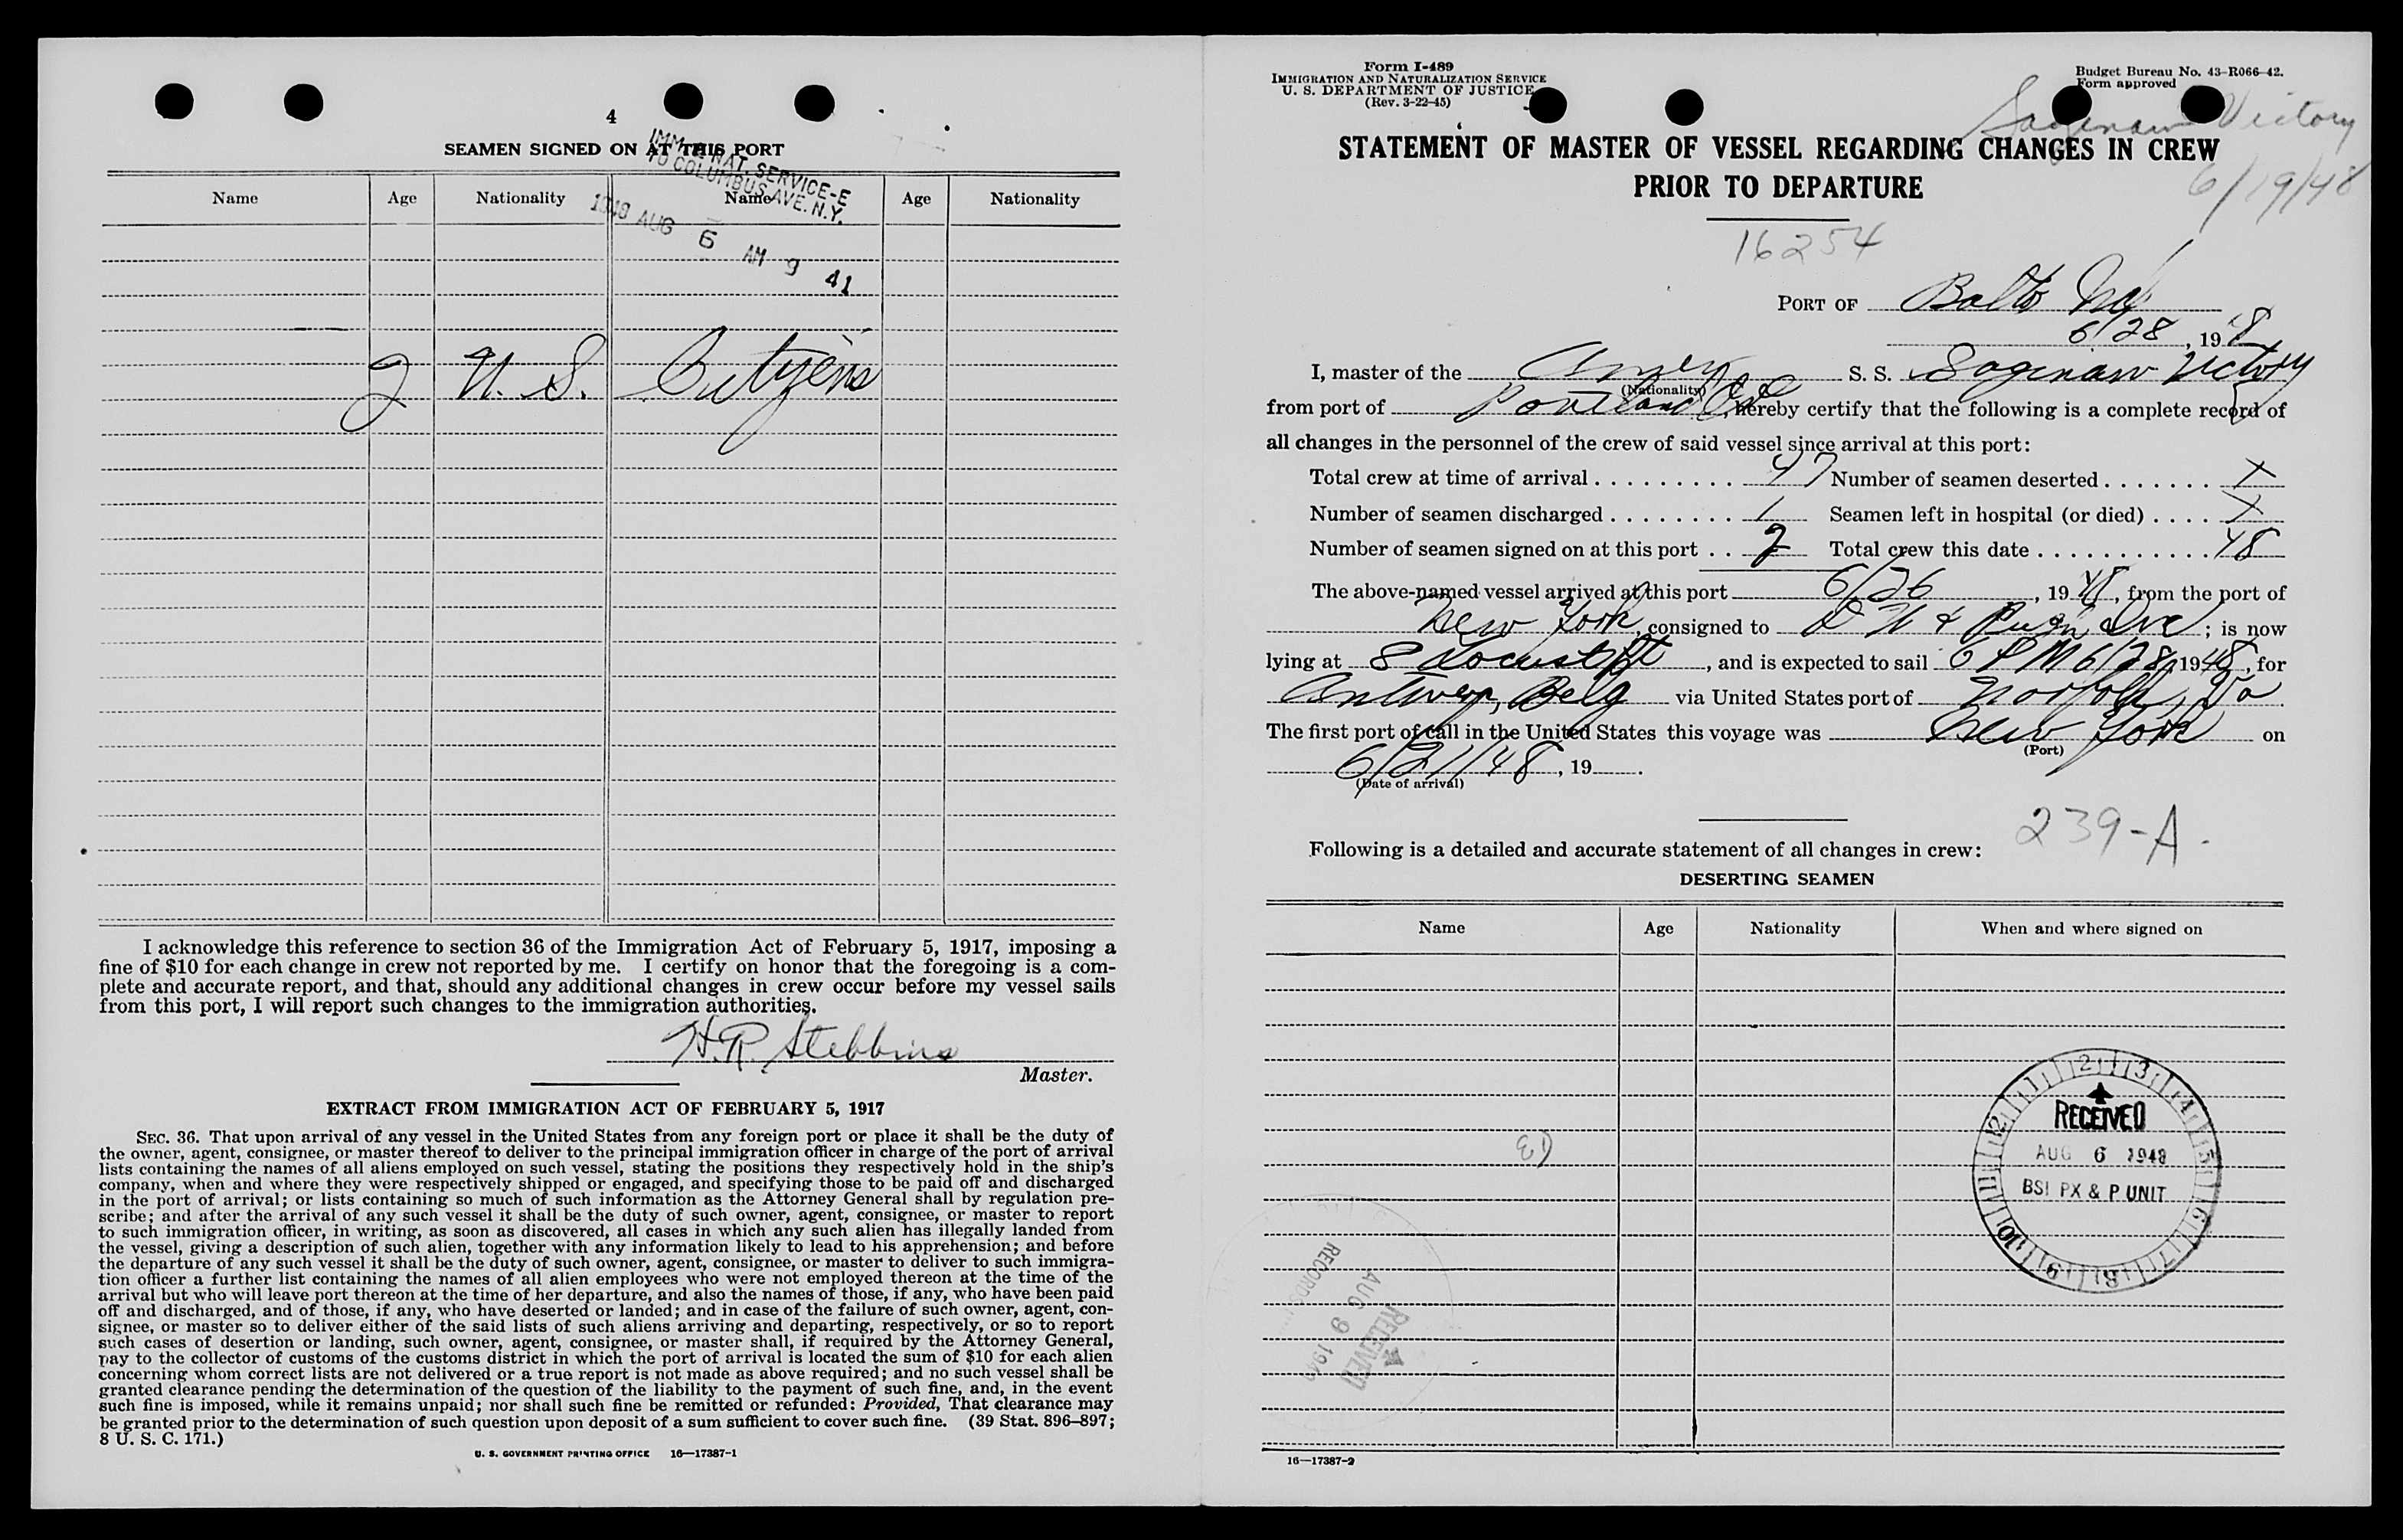 4
SEAMEN SIGNED ON AT THIS PORT
IMM. & NAT. SERVICE-E
70 COLUMBUS AVE. N.Y.
1948 AUG 6 AM 9 41
Name Age Nationality Name Age Nationality
2 U. S. Citizens
I acknowledge this reference to section 36 of the Immigration Act of February 5, 1917, imposing a
fine of $10 for each change in crew not reported by me. I certify on honor that the foregoing is a com-
plete and accurate report, and that, should any additional changes in crew occur before my vessel sails
from this port, I will report such changes to the immigration authorities.
H.R. Stebbins
Master.
EXTRACT FROM IMMIGRATION ACT OF FEBRUARY 5, 1917
SEC. 36. That upon arrival of any vessel in the United States from any foreign port or place it shall be the duty of
the owner, agent, consignee, or master thereof to deliver to the principal immigration officer in charge of the port of arrival
lists containing the names of all aliens employed on such vessel, stating the positions they respectively hold in the ship's
company, when and where they were respectively shipped or engaged, and specifying those to be paid off and discharged
in the port of arrival; or lists containing so much of such information as the Attorney General shall by regulation pre-
scribe; and after the arrival of any such vessel it shall be the duty of such owner, agent, consignee, or master to report
to such immigration officer, in writing, as soon as discovered, all cases in which any such alien has illegally landed from
the vessel, giving a description of such alien, together with any information likely to lead to his apprehension; and before
the departure of any such vessel it shall be the duty of such owner, agent, consignee, or master to deliver to such immigra-
tion officer a further list containing the names of all alien employees who were not employed thereon at the time of the
arrival but who will leave port thereon at the time of her departure, and also the names of those, if any, who have been paid
off and discharged, and of those, if any, who have deserted or landed; and in case of the failure of such owner, agent, con-
signee, or master so to deliver either of the said lists of such aliens arriving and departing, respectively, or so to report
such cases of desertion or landing, such owner, agent, consignee, or master shall, if required by the Attorney General,
pay to the collector of customs of the customs district in which the port of arrival is located the sum of $10 for each alien
concerning whom correct lists are not delivered or a true report is not made as above required; and no such vessel shall be
granted clearance pending the determination of the question of the liability to the payment of such fine, and, in the event
such fine is imposed, while it remains unpaid; nor shall such fine be remitted or refunded: Provided, That clearance may
be granted prior to the determination of such question upon deposit of a sum sufficient to cover such fine. (39 Stat. 896–897;
8 U. S. C. 171.)
U. S. GOVERNMENT PRINTING OFFICE 16—17387-1
Form I-489
IMMIGRATION AND NATURALIZATION SERVICE
U. S. DEPARTMENT OF JUSTICE
(Rev. 3-22-45)
Budget Bureau No. 43-R066-42.
Form approved
Saginaw Victory
6/19/48
STATEMENT OF MASTER OF VESSEL REGARDING CHANGES IN CREW
PRIOR TO DEPARTURE
16254
PORT OF Balto Md.
6/28, 1948
I, master of the Amer S. S. Saginaw Victory
(Nationality)
from port of Portland Ore, hereby certify that the following is a complete record of
all changes in the personnel of the crew of said vessel since arrival at this port:
Total crew at time of arrival 47 Number of seamen deserted X
Number of seamen discharged 1 Seamen left in hospital (or died) X
Number of seamen signed on at this port 2 Total crew this date 48
The above-named vessel arrived at this port 6/26, 1948, from the port of
New York, consigned to ; is now
lying at 8 Locust Pt, and is expected to sail 6 PM 6/28, 1948, for
Antwerp, Belg via United States port of Norfolk, Va.
The first port of call in the United States this voyage was New York on
(Port)
6/21/48, 19 .
(Date of arrival)
239-A.
Following is a detailed and accurate statement of all changes in crew:
DESERTING SEAMEN
Name Age Nationality When and where signed on
RECEIVED
AUG 6 1948
BSI PX & P UNIT
1 2 3 4 5 6 7 8 9 10 11 12
RECORDS
AUG 9 194
RECEIVED
16—17387-2